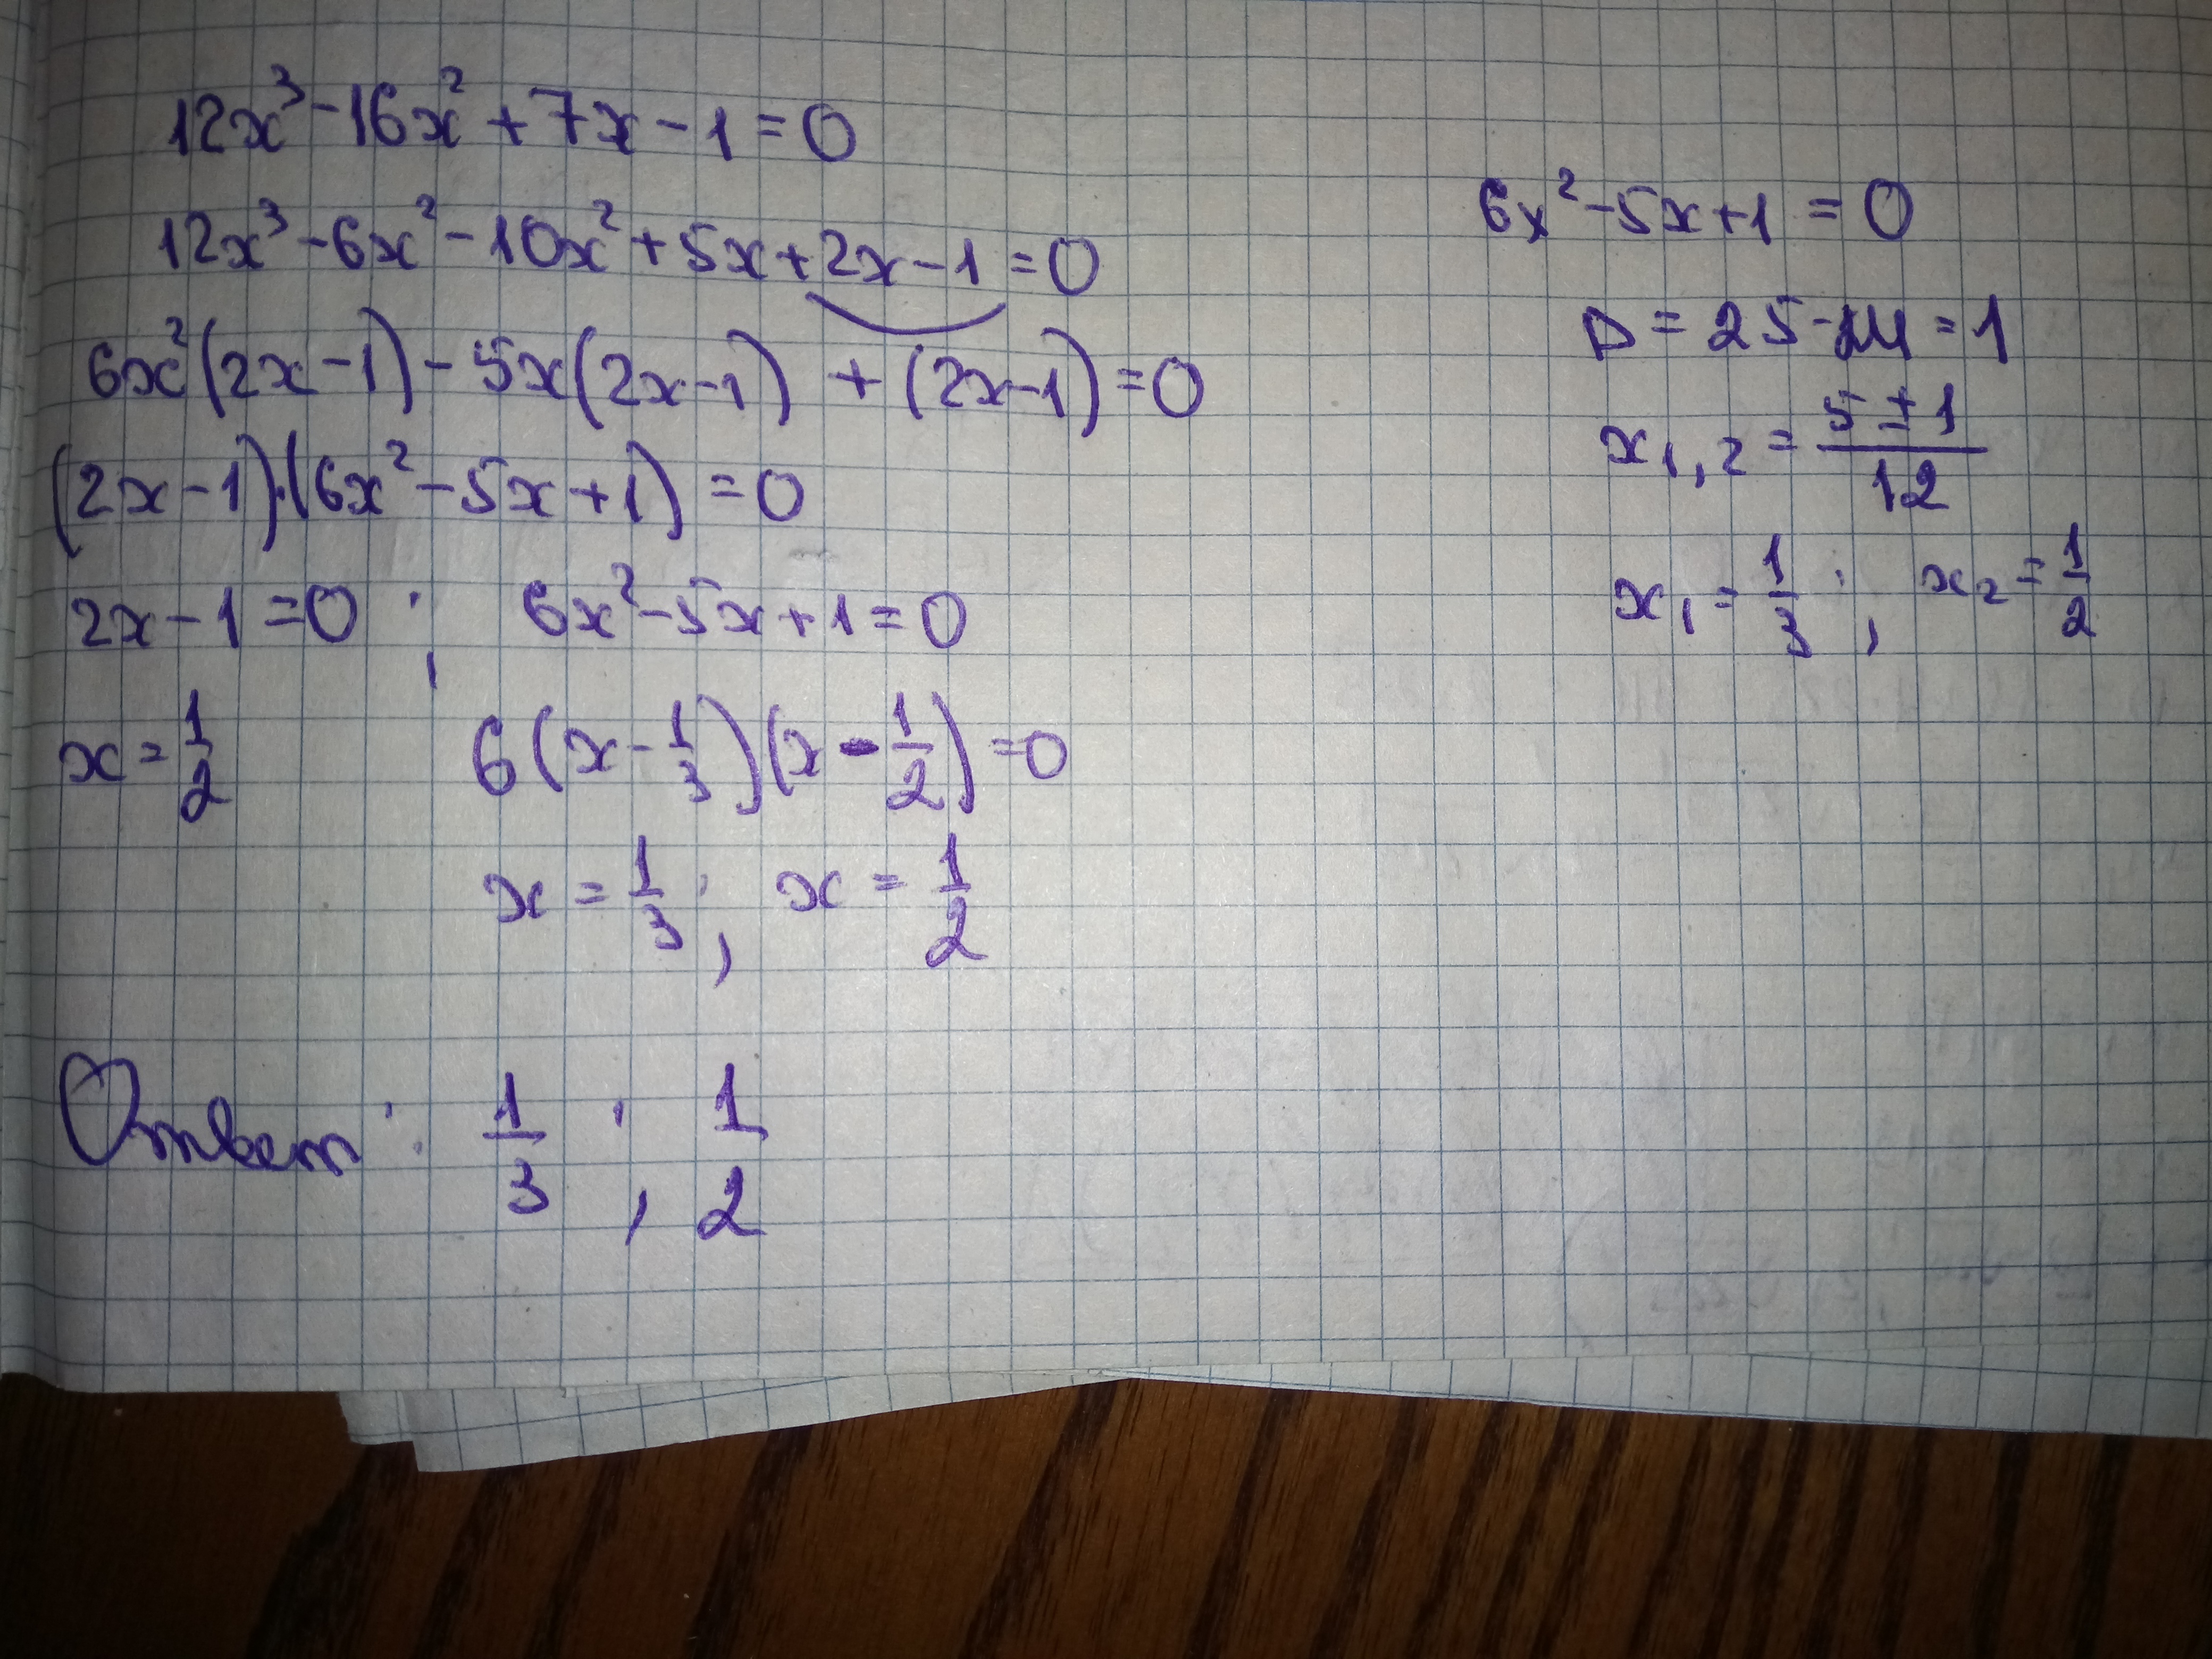 12x³-16x²+7x-1=0
12x³-6x²-10x²+5x+2x-1=0
6x²(2x-1)-5x(2x-1)+(2x-1)=0
(2x-1)·(6x²-5x+1)=0
2x-1=0; 6x²-5x+1=0
x=1/2 6(x-1/3)(x-1/2)=0
x=1/3; x=1/2
Ответ: 1/3; 1/2
6x²-5x+1=0
D=25-24=1
x₁,₂=(5±1)/12
x₁=1/3; x₂=1/2